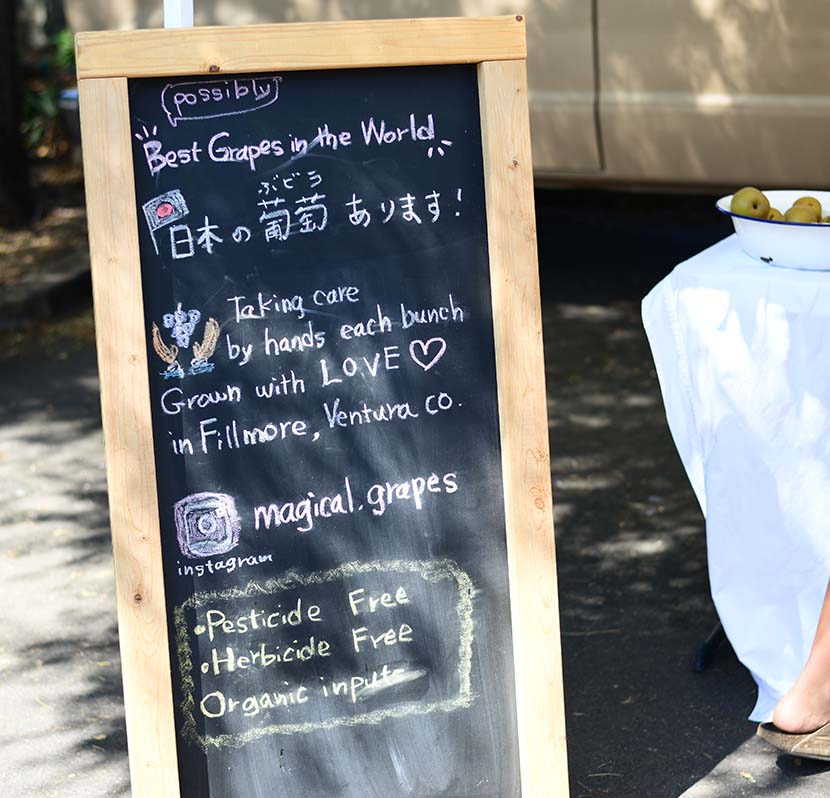 possibly
Best Grapes in the World
ぶどう
日本の葡萄あります!
Taking care
by hands each bunch
Grown with LOVE ♡
in Fillmore, Ventura co.
magical.grapes
instagram
•Pesticide Free
•Herbicide Free
Organic inputs